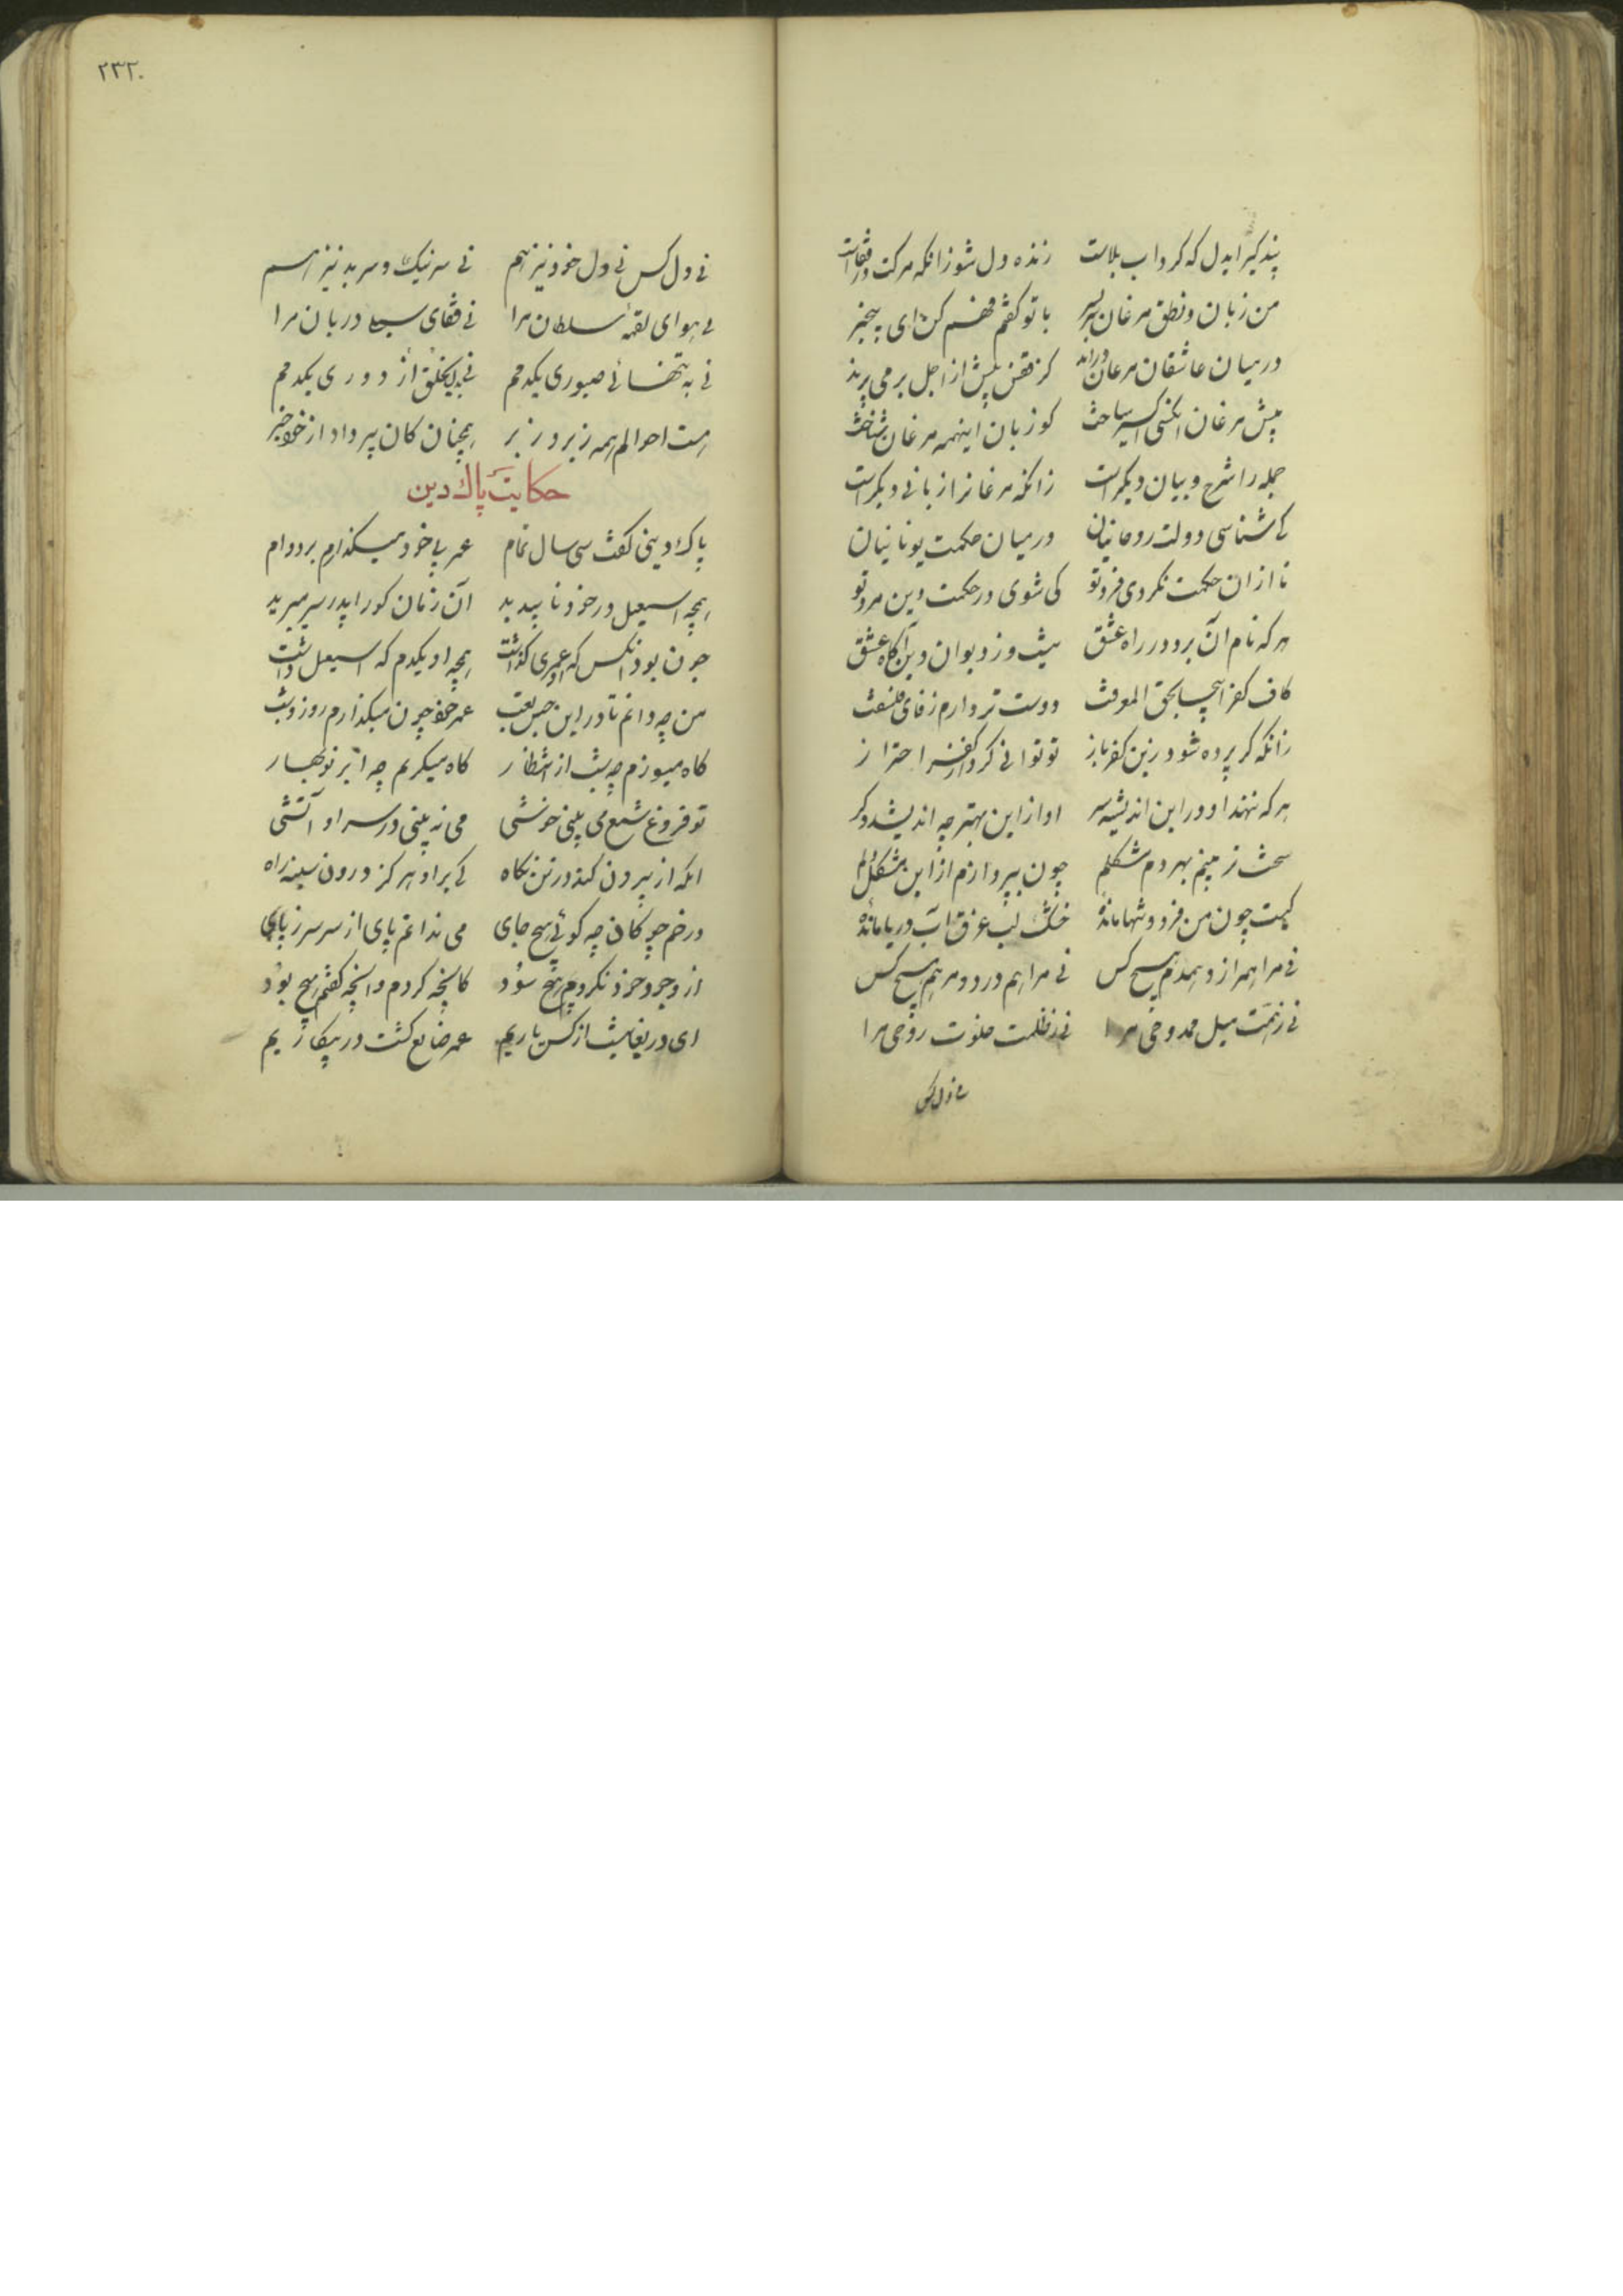 پند گیر ایدل که گرداب بلاست    زنده دل شو زانکه مرکت در قفاست
من زبان و نطق مرغان سربسر    با تو گفتم فهم کن ای بیخبر
در میان عاشقان مرغان درند    کز قفس پیش از اجل بر می پرند
پیش مرغان آنکسی اکسیر ساخت    کو زبان اینهمه مرغان شناخت
جمله را شرح و بیان دیگر است    زانکه مرغانرا زبانی دیگر است
کی شناسی دولت روحانیان    در میان حکمت یونانیان
تا از ان حکمت نگردی فرد تو    کی شوی در حکمت دین مرد تو
هر که نام آن برد در راه عشق    نیست در دیوان دین آگاه عشق
کاف کفر اینجا بحق المعرفت    دوست تر دارم ز فای فلسفت
زانکه گر پرده شود زین کفر باز    تو توانی کرد از کفر احتراز
هر که نهند او در این اندیشه سر    او از این بهتر چه اندیشد دگر
سخت تر بینم بهر دم مشکلم    چون بپردازم از این مشکل دلم
کیست چون من فرد و تنها مانده    خشک لب غرق آب دریا مانده
نی مرا همراز و همدم هیچ کس    نی مرا هم درد و مرهم هیچ کس
نی ز همت میل ممدوحی مرا    نی ز ظلمت خلوت روحی مرا
نی دل کس
۲۳۲۰
نی دل کس نی دل خود نیز هم    نی سر نیک و سر بد نیز هم
نی هوای لقمه سلطان مرا    نی قفای سیلی دربان مرا
نی به تنهائی صبوری یکدمم    نی بدل از خلق دوری یکدمم
هست احوالم همه زیر و زبر    همچنان کان پیر داد از خود خبر
حکایت پاک دین
پاک دینی گفت سی سال تمام    عمر بی خود میگذارم بر دوام
همچه اسمعیل در خود ناپدید    آن زمان کو را پدر سر میبرید
چون بود آنکس که او عمری گذاشت    همچه او یکدم که اسمعیل داشت
من چه دانم تا در این حبس تعب    عمر خود چون میگذارم روز و شب
گاه میسوزم چه شمع از انتظار    گاه میگریم چه ابر نوبهار
تو فروغ شمع می بینی خوشی    می نه بینی در سر او آتشی
آنکه از بیرون کند در تن نگاه    کی برد او هرگز درون سینه راه
در خم چوگان چه گوئی هیچ جای    می ندانم پای از سر سر ز پای
از وجود خود نکردم هیچ سود    کانچه کردم وانچه گفتم هیچ بود
ای دریغا نیست از کس یاریم    عمر ضایع گشت در بیکاریم